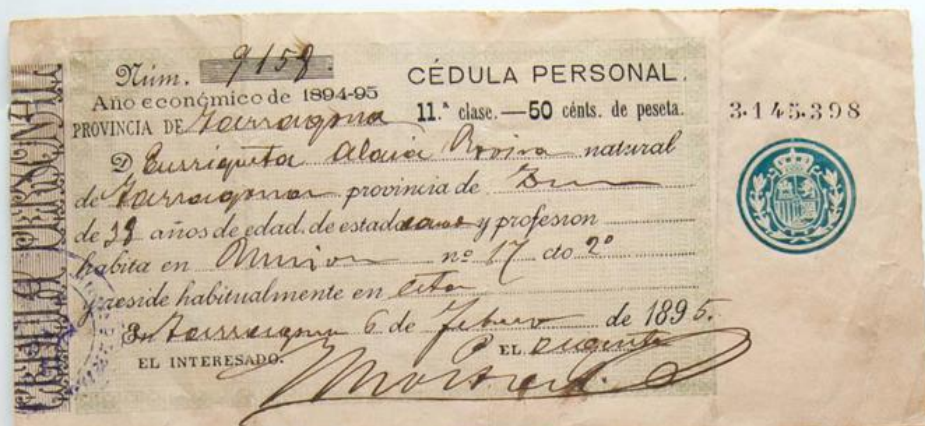 Núm. 9159.
CÉDULA PERSONAL.
Año económico de 1894-95
11.ª clase.—50 cénts. de peseta.
3.145.398
PROVINCIA DE Tarragona
D Enriqueta natural
de Tarragona provincia de
de años de edad, de estado y profesion
habita en Union nº 17 cto 2º
y reside habitualmente en esta
En Tarragona 6 de febrero de 1895.
EL INTERESADO.
EL
CÉDULA PERSONAL